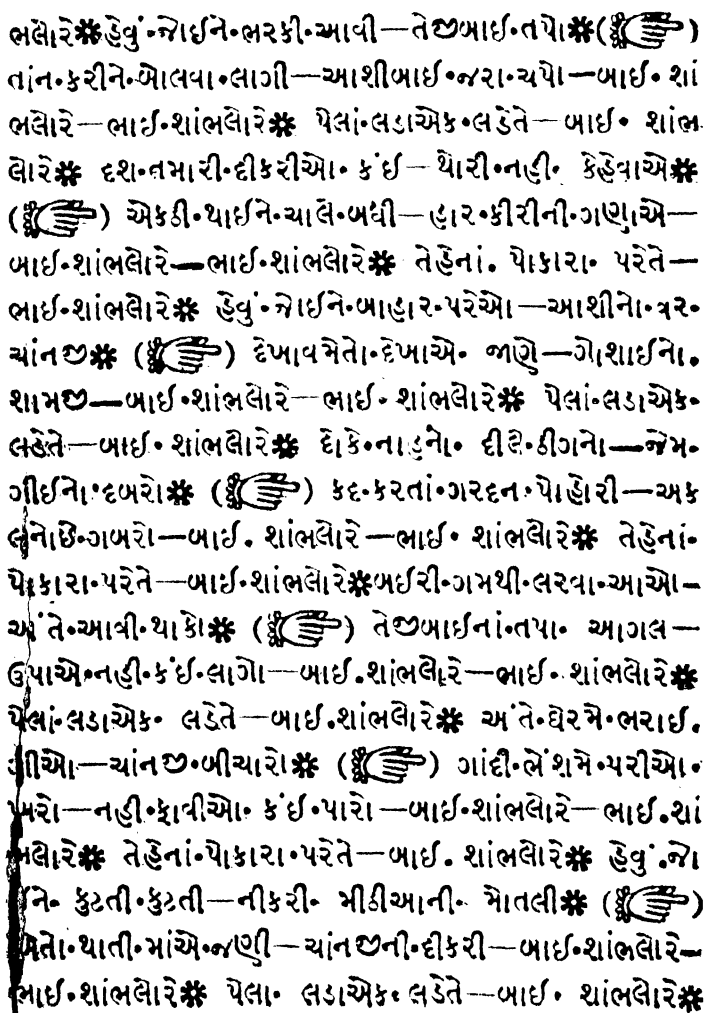 ભલોરે✽હેવું·જોઈને·ભરકી·આવી—તેજીબાઈ·તપો✽(☞)
તાંન·કરીને·બોલવા·લાગી—આશીબાઈ·જરા·ચપો—બાઈ·શાં
ભલોરે—ભાઈ·શાંભલોરે✽ પેલાં·લડાએક·લડેતે—બાઈ· શાંભ
લોરે✽ દશ·તમારી·દીકરીઓ· કંઈ—થોરી·નહી· કેહેવાએ✽
(☞) એકઠી·થાઈને·ચાલે·બધી—હાર·કીરીની·ગણાએ—
બાઈ·શાંભલોરે—ભાઈ·શાંભલોરે✽ તેહેનાં· પોકારા· પરેતે—
ભાઈ·શાંભલોરે✽ હેવું·જોઈને·બાહાર·પરેઓ—આશીનો·વર·
ચાંનજી✽ (☞) દેખાવમેતો·દેખાએ· જાણે—ગોશાઈનો·
શામજી—બાઈ·શાંભલોરે—ભાઈ· શાંભલોરે✽ પેલાં·લડાએક·
લડેતે—બાઈ· શાંભલોરે✽ દોકે·નાહનો· દીલે·ઠીગનો—જેમ·
ગીઈનો·દબરો✽ (☞) કદ·કરતાં·ગરદન·પોહોરી—અક
લનોછે·ગબરો—બાઈ· શાંભલોરે—ભાઈ· શાંભલોરે✽ તેહેનાં·
પોકારા·પરેતે—બાઈ·શાંભલોરે✽બઈરી·ગમથી·લરવા·આઓ—
અંતે·આવી·થાકો✽ (☞) તેજીબાઈનાં·તપા· આગલ—
ઉપાએ·નહી·કંઈ·લાગો—બાઈ·શાંભલોરે—ભાઈ· શાંભલોરે✽
પેલાં·લડાએક· લડેતે—બાઈ·શાંભલોરે✽ અંતે·ઘેરમે·ભરાઈ·
ગીઓ—ચાંનજી·બીચારો✽ (☞) ગાંદી·ભેંશમે·પરીઓ·
ખરો—નહી·ફાવીઓ· કંઈ·પારો—બાઈ·શાંભલોરે—ભાઈ·શાં
ભલોરે✽ તેહેનાં·પોકારા·પરેતે—બાઈ· શાંભલોરે✽ હેવું·જો
ઈને· કુટતી·કુટતી—નીકરી· મીઠીઆની· મોતલી✽ (☞)
એતો·થાતી·માંએ·જણી—ચાંનજીની·દીકરી—બાઈ·શાંભલોરે—
ભાઈ·શાંભલોરે✽ પેલા· લડાએક· લડેતે—બાઈ· શાંભલોરે✽